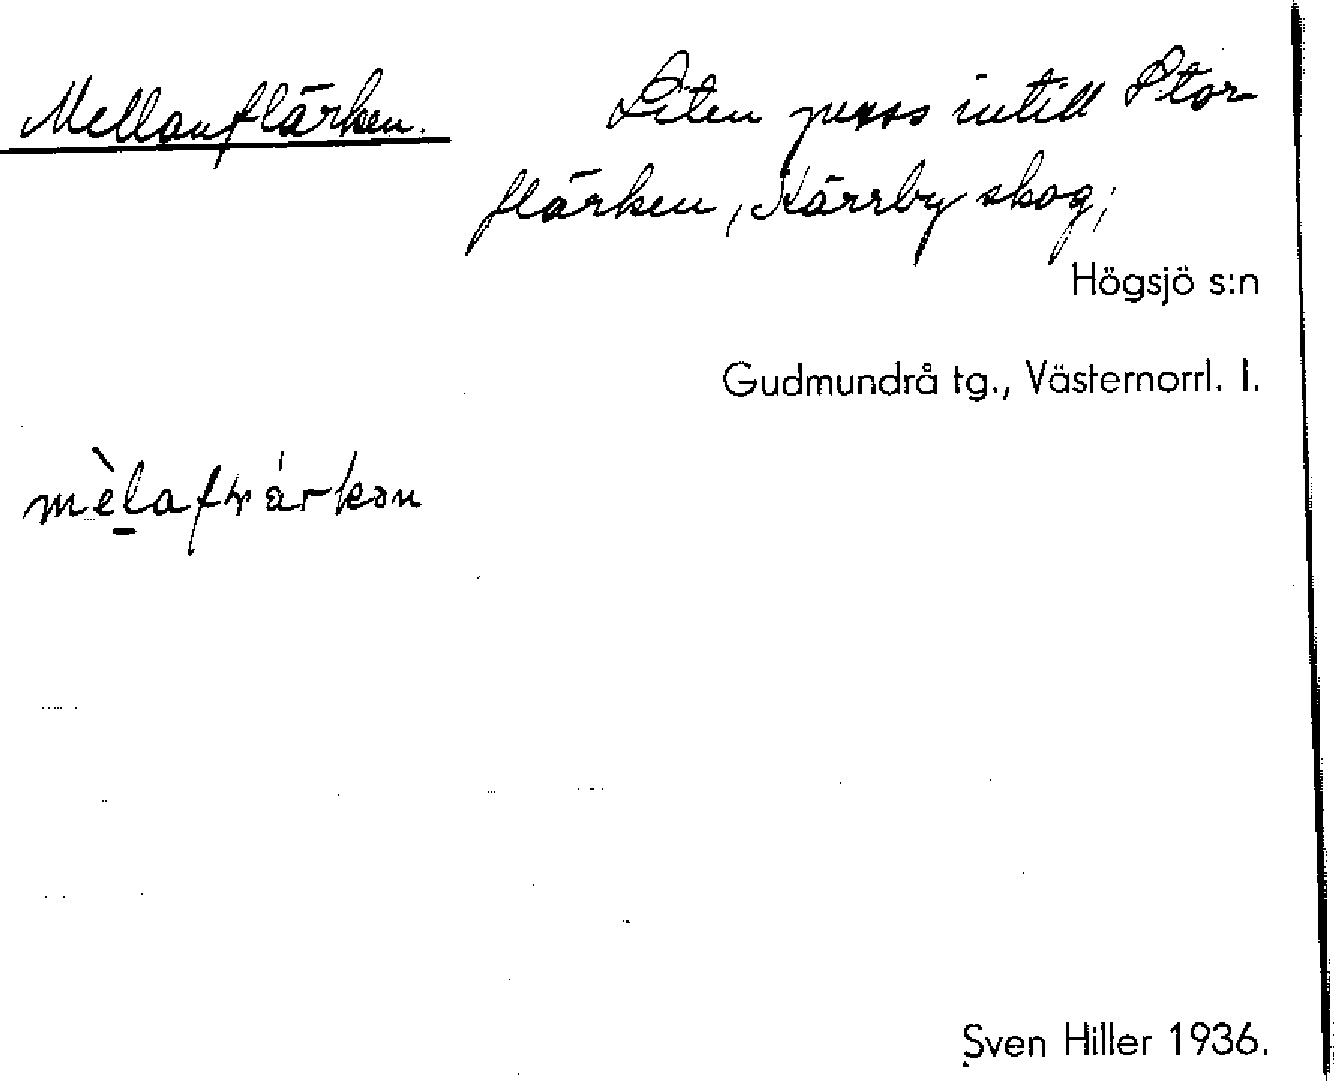 Mellanflärken.
Liten puss intill Stor-
flärken, Kärrby skog;
Högsjö s:n
Gudmundrå tg., Västernorrl. l.
Sven Hiller 1936.